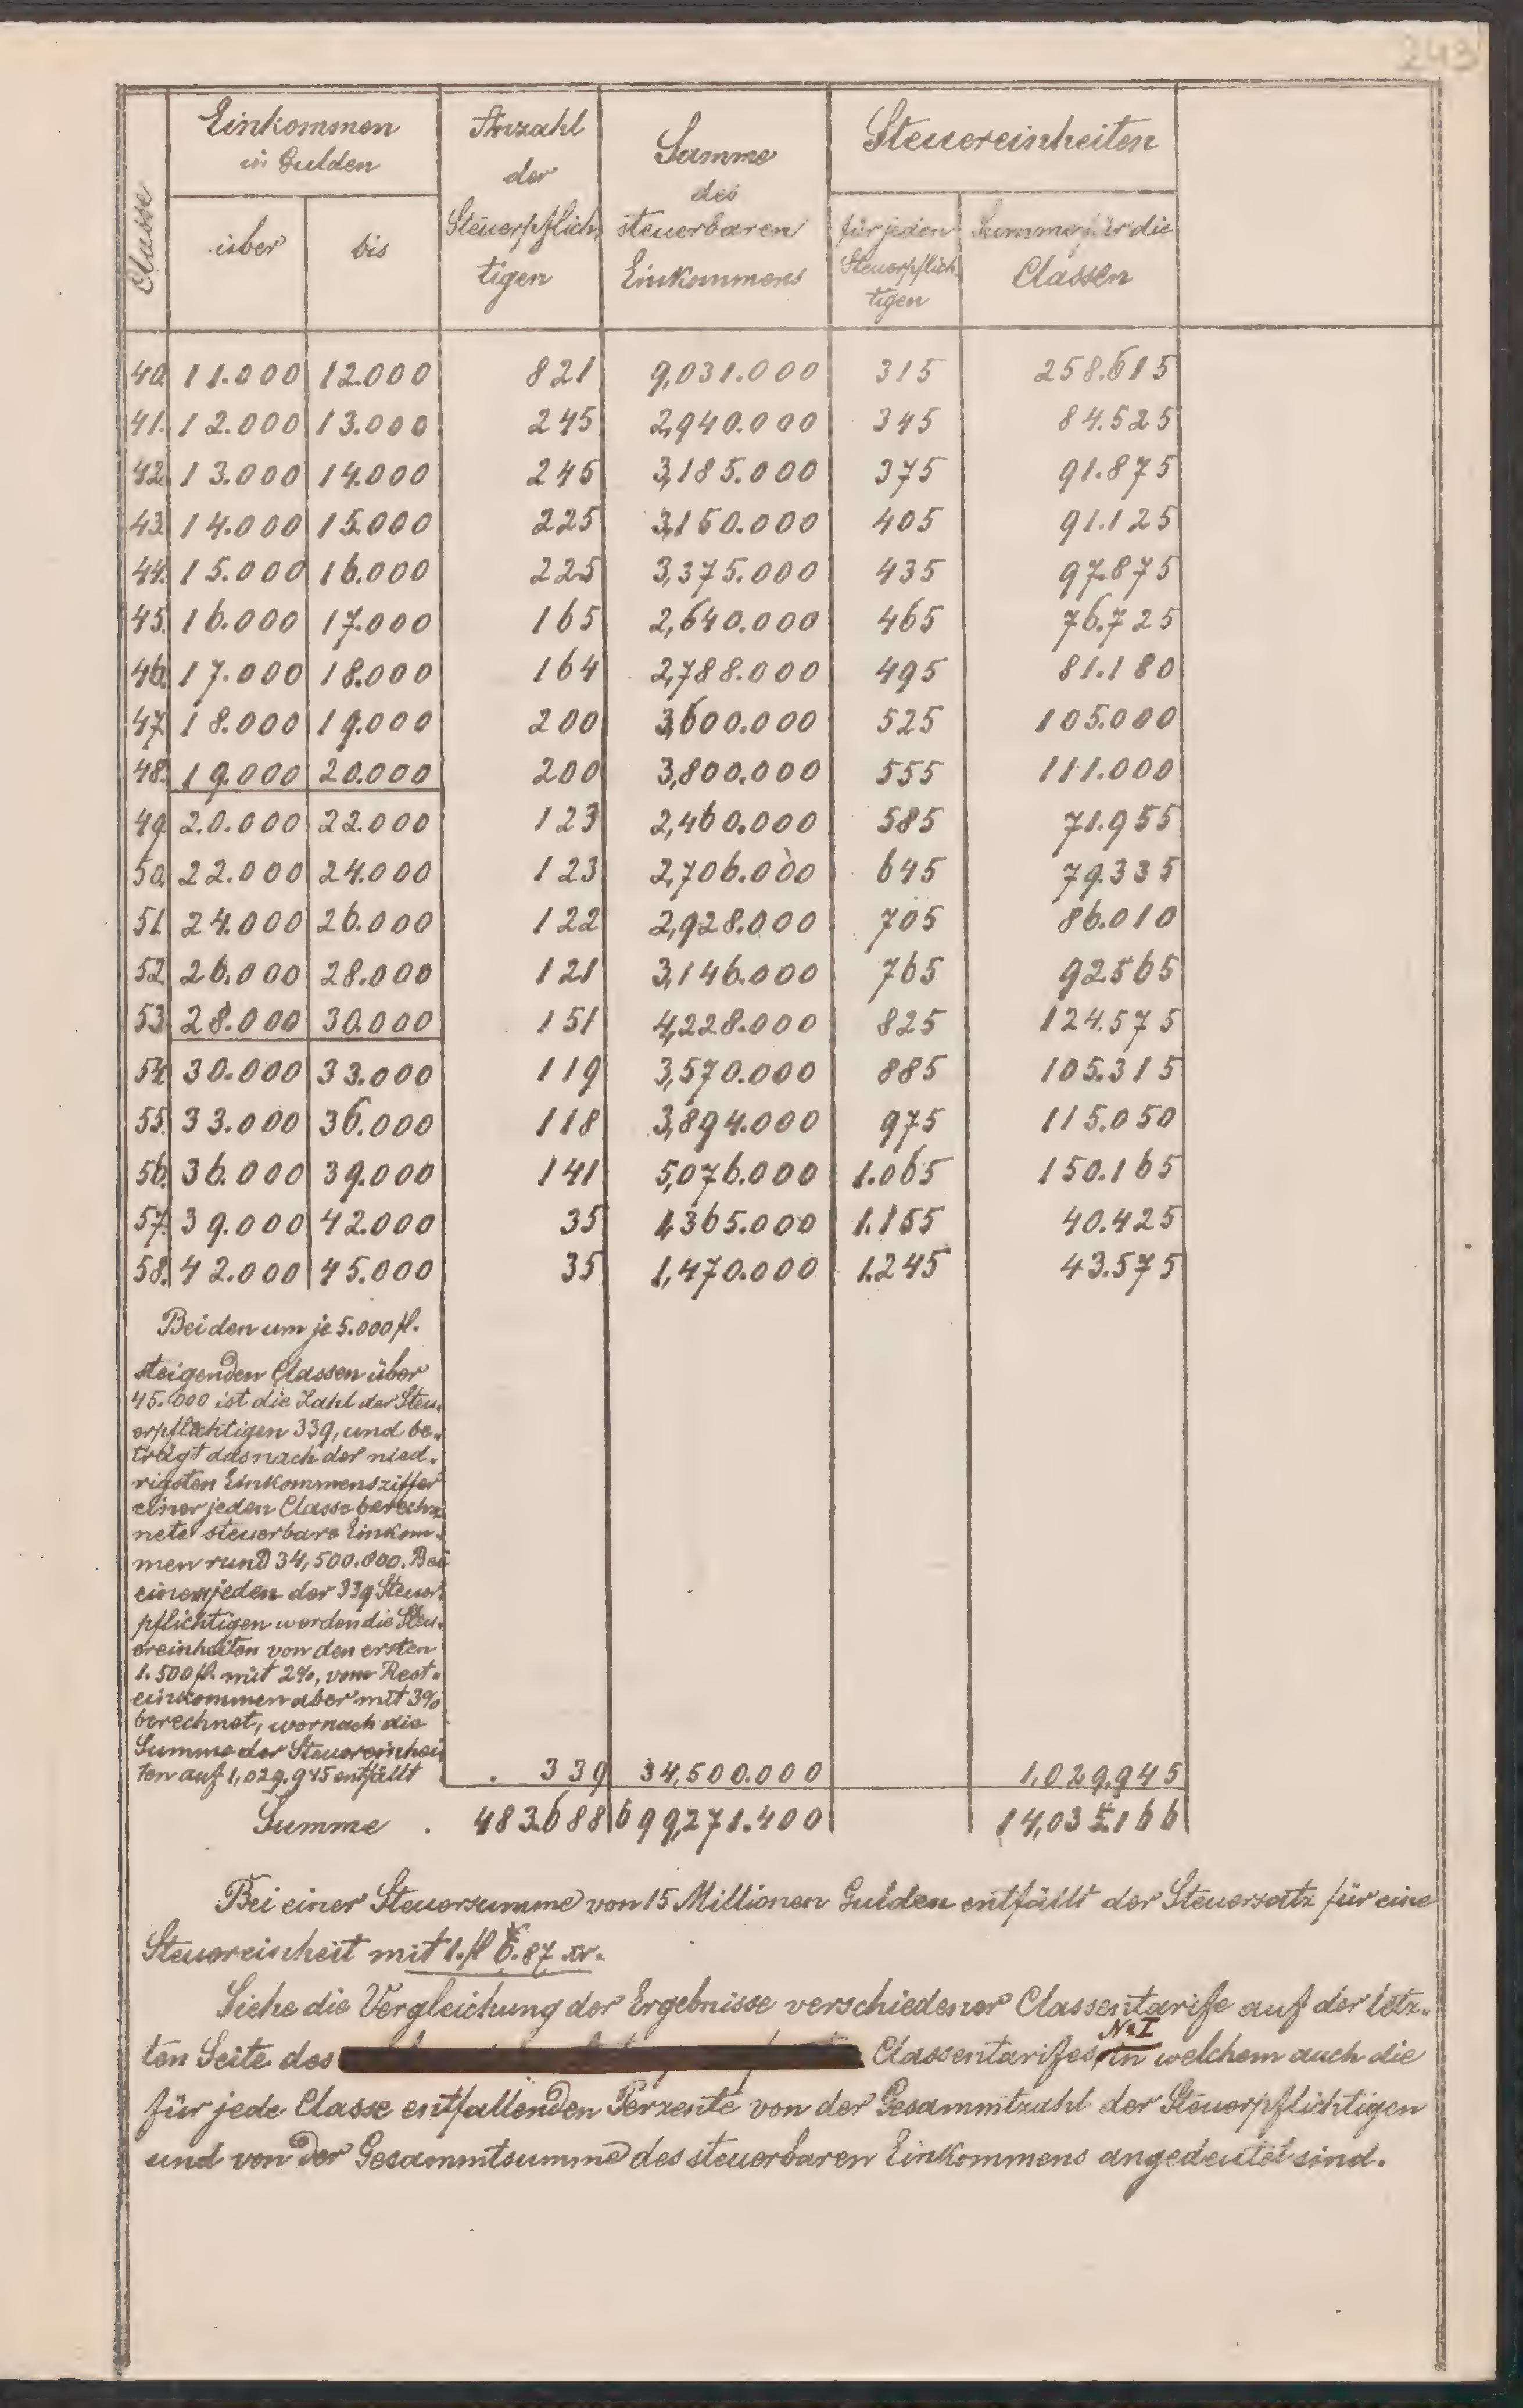 243
Classe
Einkommen
in Gulden
über
bis
Anzahl
der
Steuerpflich,
tigen
Summe
des
steuerbaren
Einkommens
Steuereinheiten
für jeden
Steuerpflich,
tigen
Summe für die
Classen
40. 11.000 12.000 821 9,031.000 315 258.615
41. 12.000 13.000 245 2,940.000 345 84.525
42. 13.000 14.000 245 3,185.000 375 91.875
43. 14.000 15.000 225 3,150.000 405 91.125
44. 15.000 16.000 225 3,375.000 435 97.875
45. 16.000 17.000 165 2,640.000 465 76.725
46. 17.000 18.000 164 2,788.000 495 81.180
47. 18.000 19.000 200 3,600.000 525 105.000
48. 19.000 20.000 200 3,800.000 555 111.000
49. 20.000 22.000 123 2,460.000 585 71.955
50. 22.000 24.000 123 2,706.000 645 79.335
51. 24.000 26.000 122 2,928.000 705 86.010
52. 26.000 28.000 121 3,146.000 765 92565
53. 28.000 30.000 151 4,228.000 825 124.575
54. 30.000 33.000 119 3,570.000 885 105.315
55. 33.000 36.000 118 3,894.000 975 115.050
56. 36.000 39.000 141 5,076.000 1.065 150.165
57. 39.000 42.000 35 1,365.000 1.155 40.425
58. 42.000 45.000 35 1,470.000 1.245 43.575
Bei den um je 5.000 fl.
steigenden Classen über
45.000 ist die Zahl der Steu,
erpflichtigen 339, und be,
trägt das nach der nied,
rigsten Einkommensziffer
einer jeden Classe berech,
nete steuerbare Einkom,
men rund 34,500.000. Bei
einem jeden der 339 Steuer,
pflichtigen werden die Steu,
ereinheiten von den ersten
1.500 fl. mit 2%, vom Rest,
einkommen aber mit 3%
berechnet, wornach die
Summe der Steuereinhei
ten auf 1,029.945 entfällt . 339 34,500.000 1,029.945
Summe . 483.688 699,271.400 14,035.166
Bei einer Steuersumme von 15 Millionen Gulden entfällt der Steuersatz für eine
Steuereinheit mit 1.fl 6.87 xr.
Siehe die Vergleichung der Ergebnisse verschiedener Classentarife auf der letz,
ten Seite des Classentarifes No I in welchem auch die
für jede Classe entfallenden Perzente von der Gesammtzahl der Steuerpflichtigen
und von der Gesammtsumme des steuerbaren Einkommens angedeutet sind.